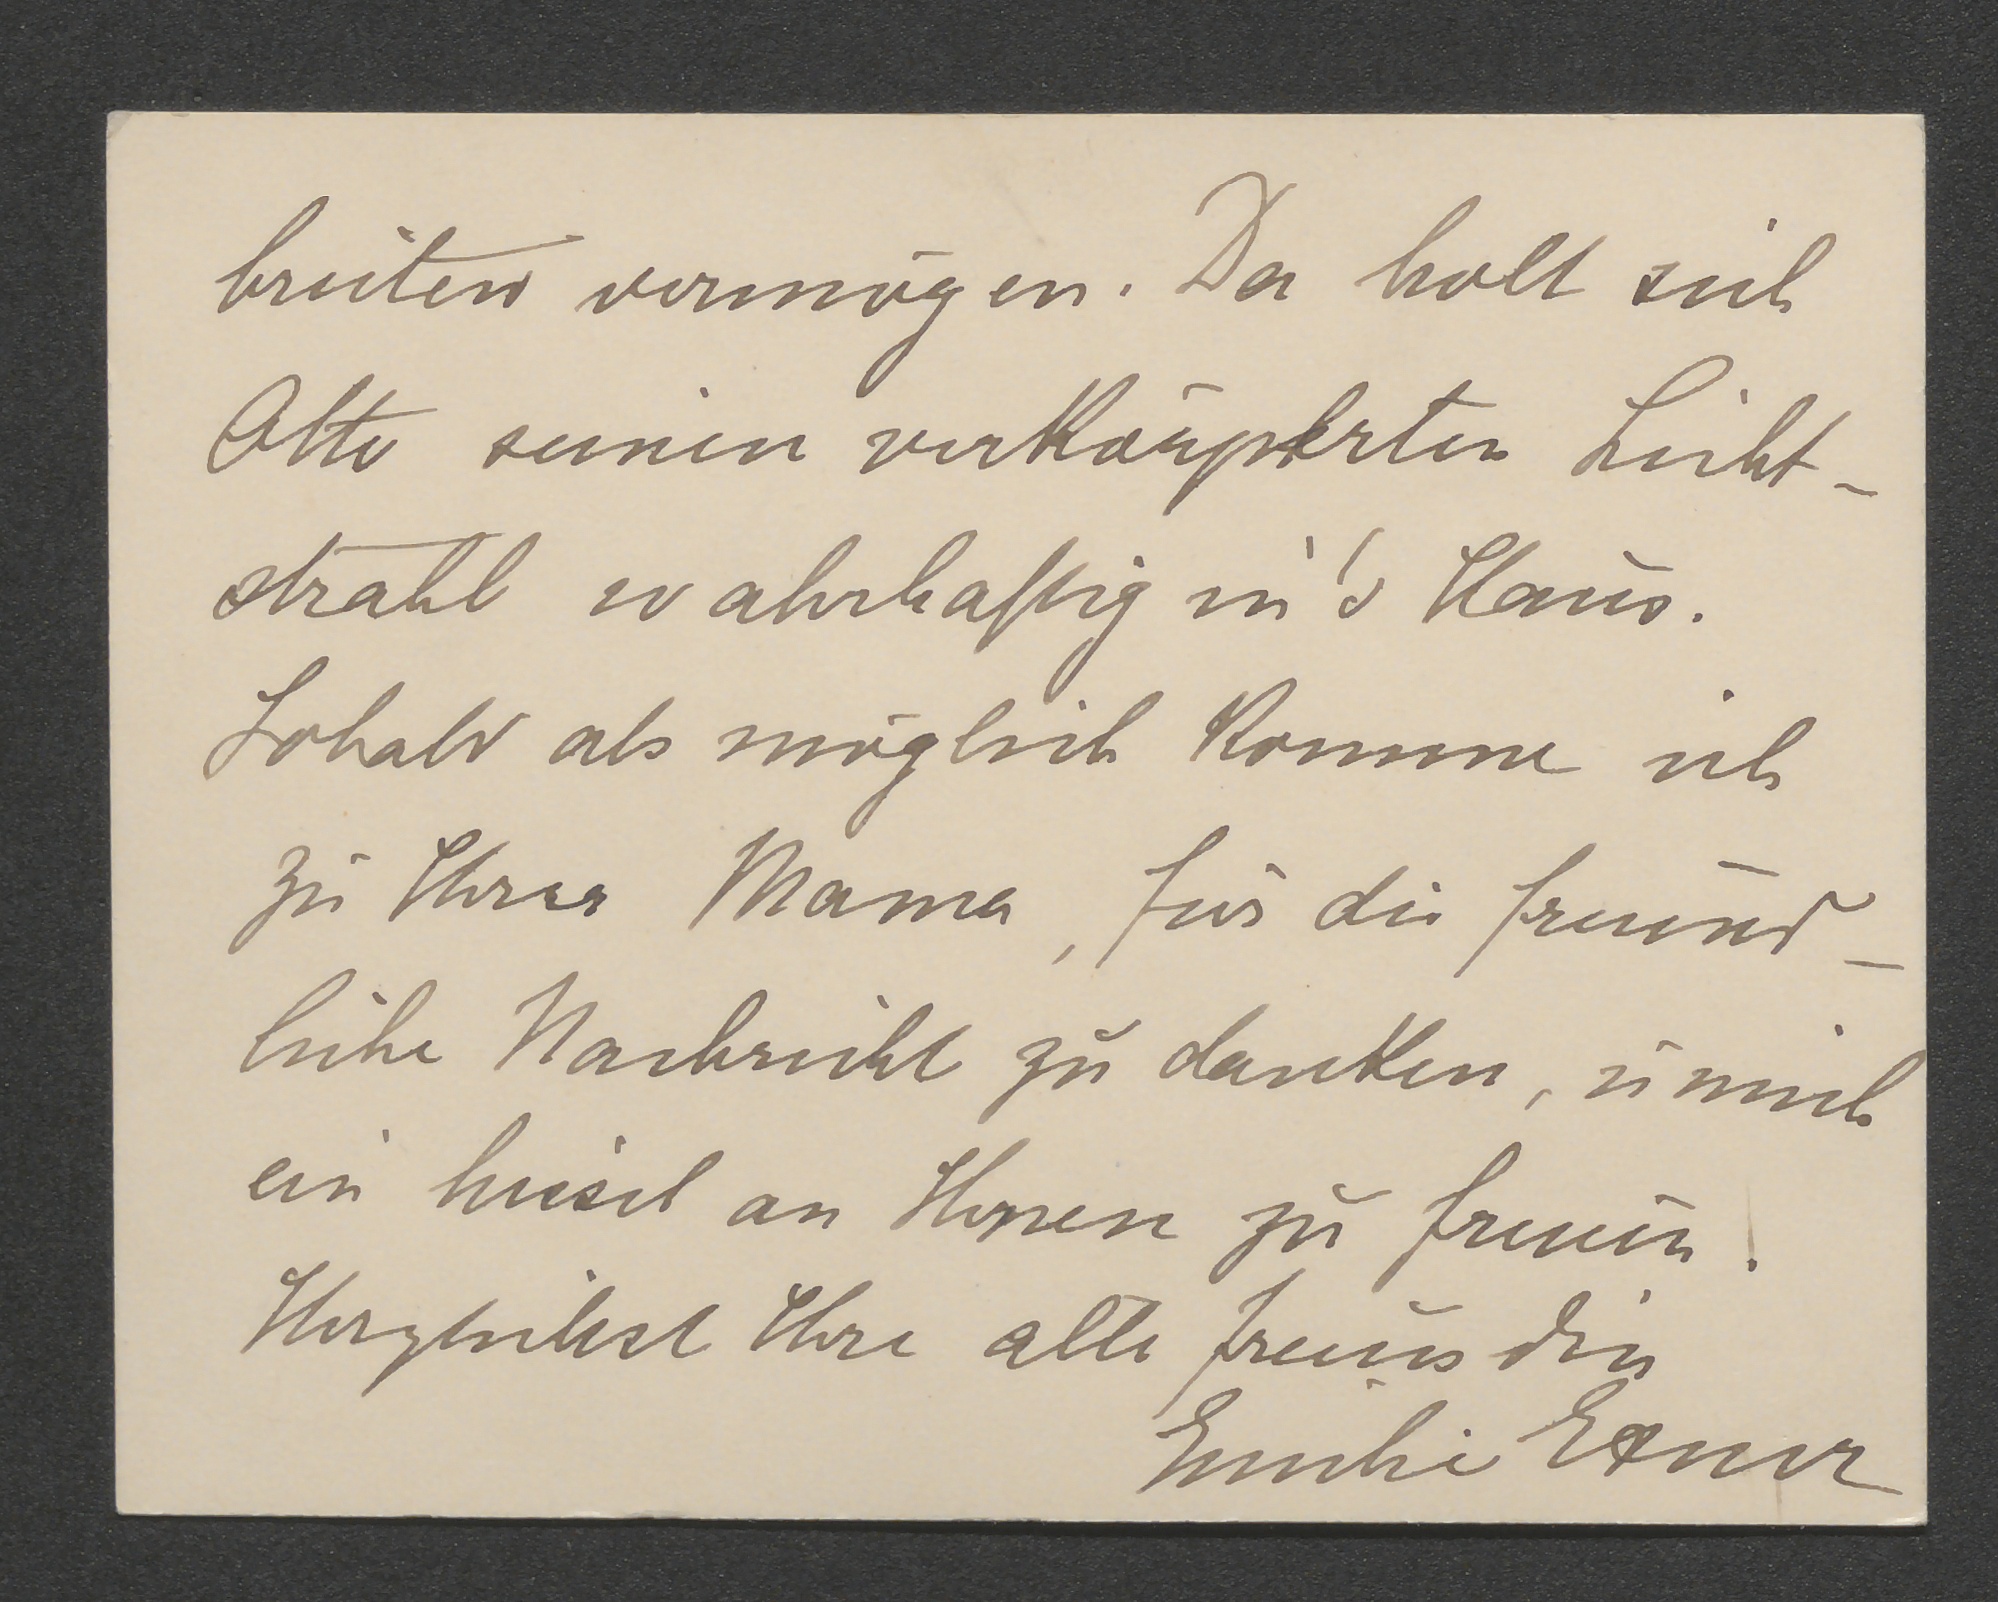 breiten vermögen. Da holt sich
Otto seinen verkörperten Licht-
strahl wahrhaftig in's Haus.
Sobald als möglich komme ich
zu Ihrer Mama, für die freund-
liche Nachricht zu danken, u mich
ein bissel an Ihnen zu freuen.
Herzlichst Ihre alte Freundin
Emilie Exner